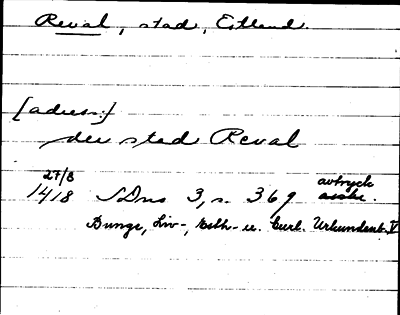 Reval, stad, Estland.
[adress:]
der sted Reval
27/8
1418 SDns 3, s. 369 avtryck
Bunge, Liv-, Esth- u. Curl. Urkundenb. V